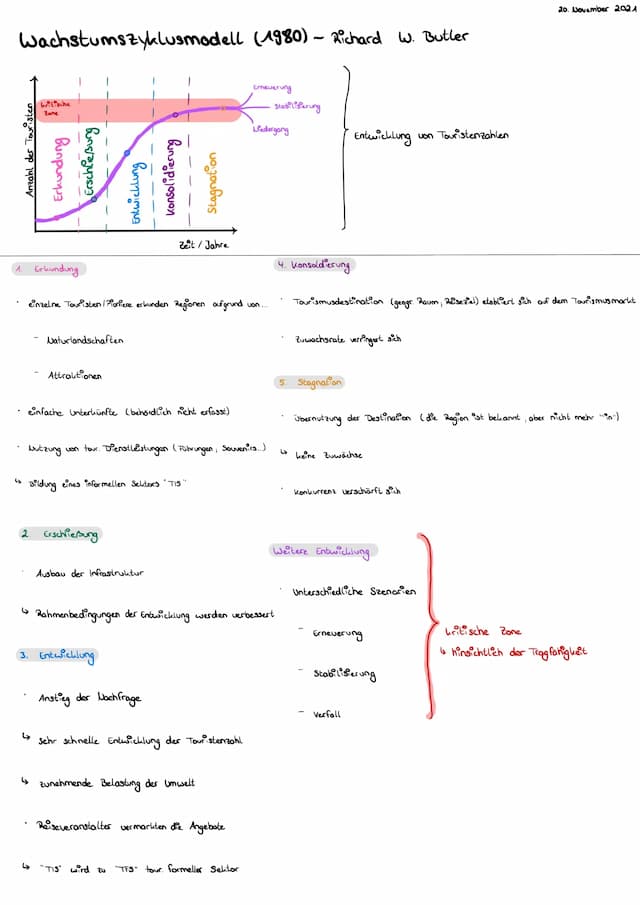 20. November 2021
Wachstumszyklusmodell (1980) – Richard W. Butler
Anzahl der Touristen
kritische
Zone
Erkundung
Erschließung
Entwicklung
Konsolidierung
Stagnation
Erneuerung
Stabilisierung
Niedergang
Zeit / Jahre
Entwicklung von Touristenzahlen
1. Erkundung
· einzelne Touristen / Pioniere erkunden Regionen aufgrund von...
– Naturlandschaften
– Attraktionen
· einfache Unterkünfte (behördlich nicht erfasst)
· Nutzung von tour. Dienstleistungen (Führungen, Souvenirs...)
↳ Bildung eines informellen Sektors "TIS"
2. Erschließung
· Ausbau der Infrastruktur
↳ Rahmenbedingungen der Entwicklung werden verbessert
3. Entwicklung
· Anstieg der Nachfrage
↳ sehr schnelle Entwicklung der Touristenzahl
↳ zunehmende Belastung der Umwelt
· Reiseveranstalter vermarkten die Angebote
↳ "TIS" wird zu "TFS" tour. formeller Sektor
4. Konsolidierung
· Tourismusdestination (geogr. Raum, Reiseziel) etabliert sich auf dem Tourismusmarkt
· Zuwachsrate verringert sich
5. Stagnation
· Übernutzung der Destination (die Region ist bekannt, aber nicht mehr "in")
↳ keine Zuwächse
· Konkurrenz verschärft sich
Weitere Entwicklung
· Unterschiedliche Szenarien
– Erneuerung
– Stabilisierung
– Verfall
kritische Zone
↳ hinsichtlich der Tragfähigkeit